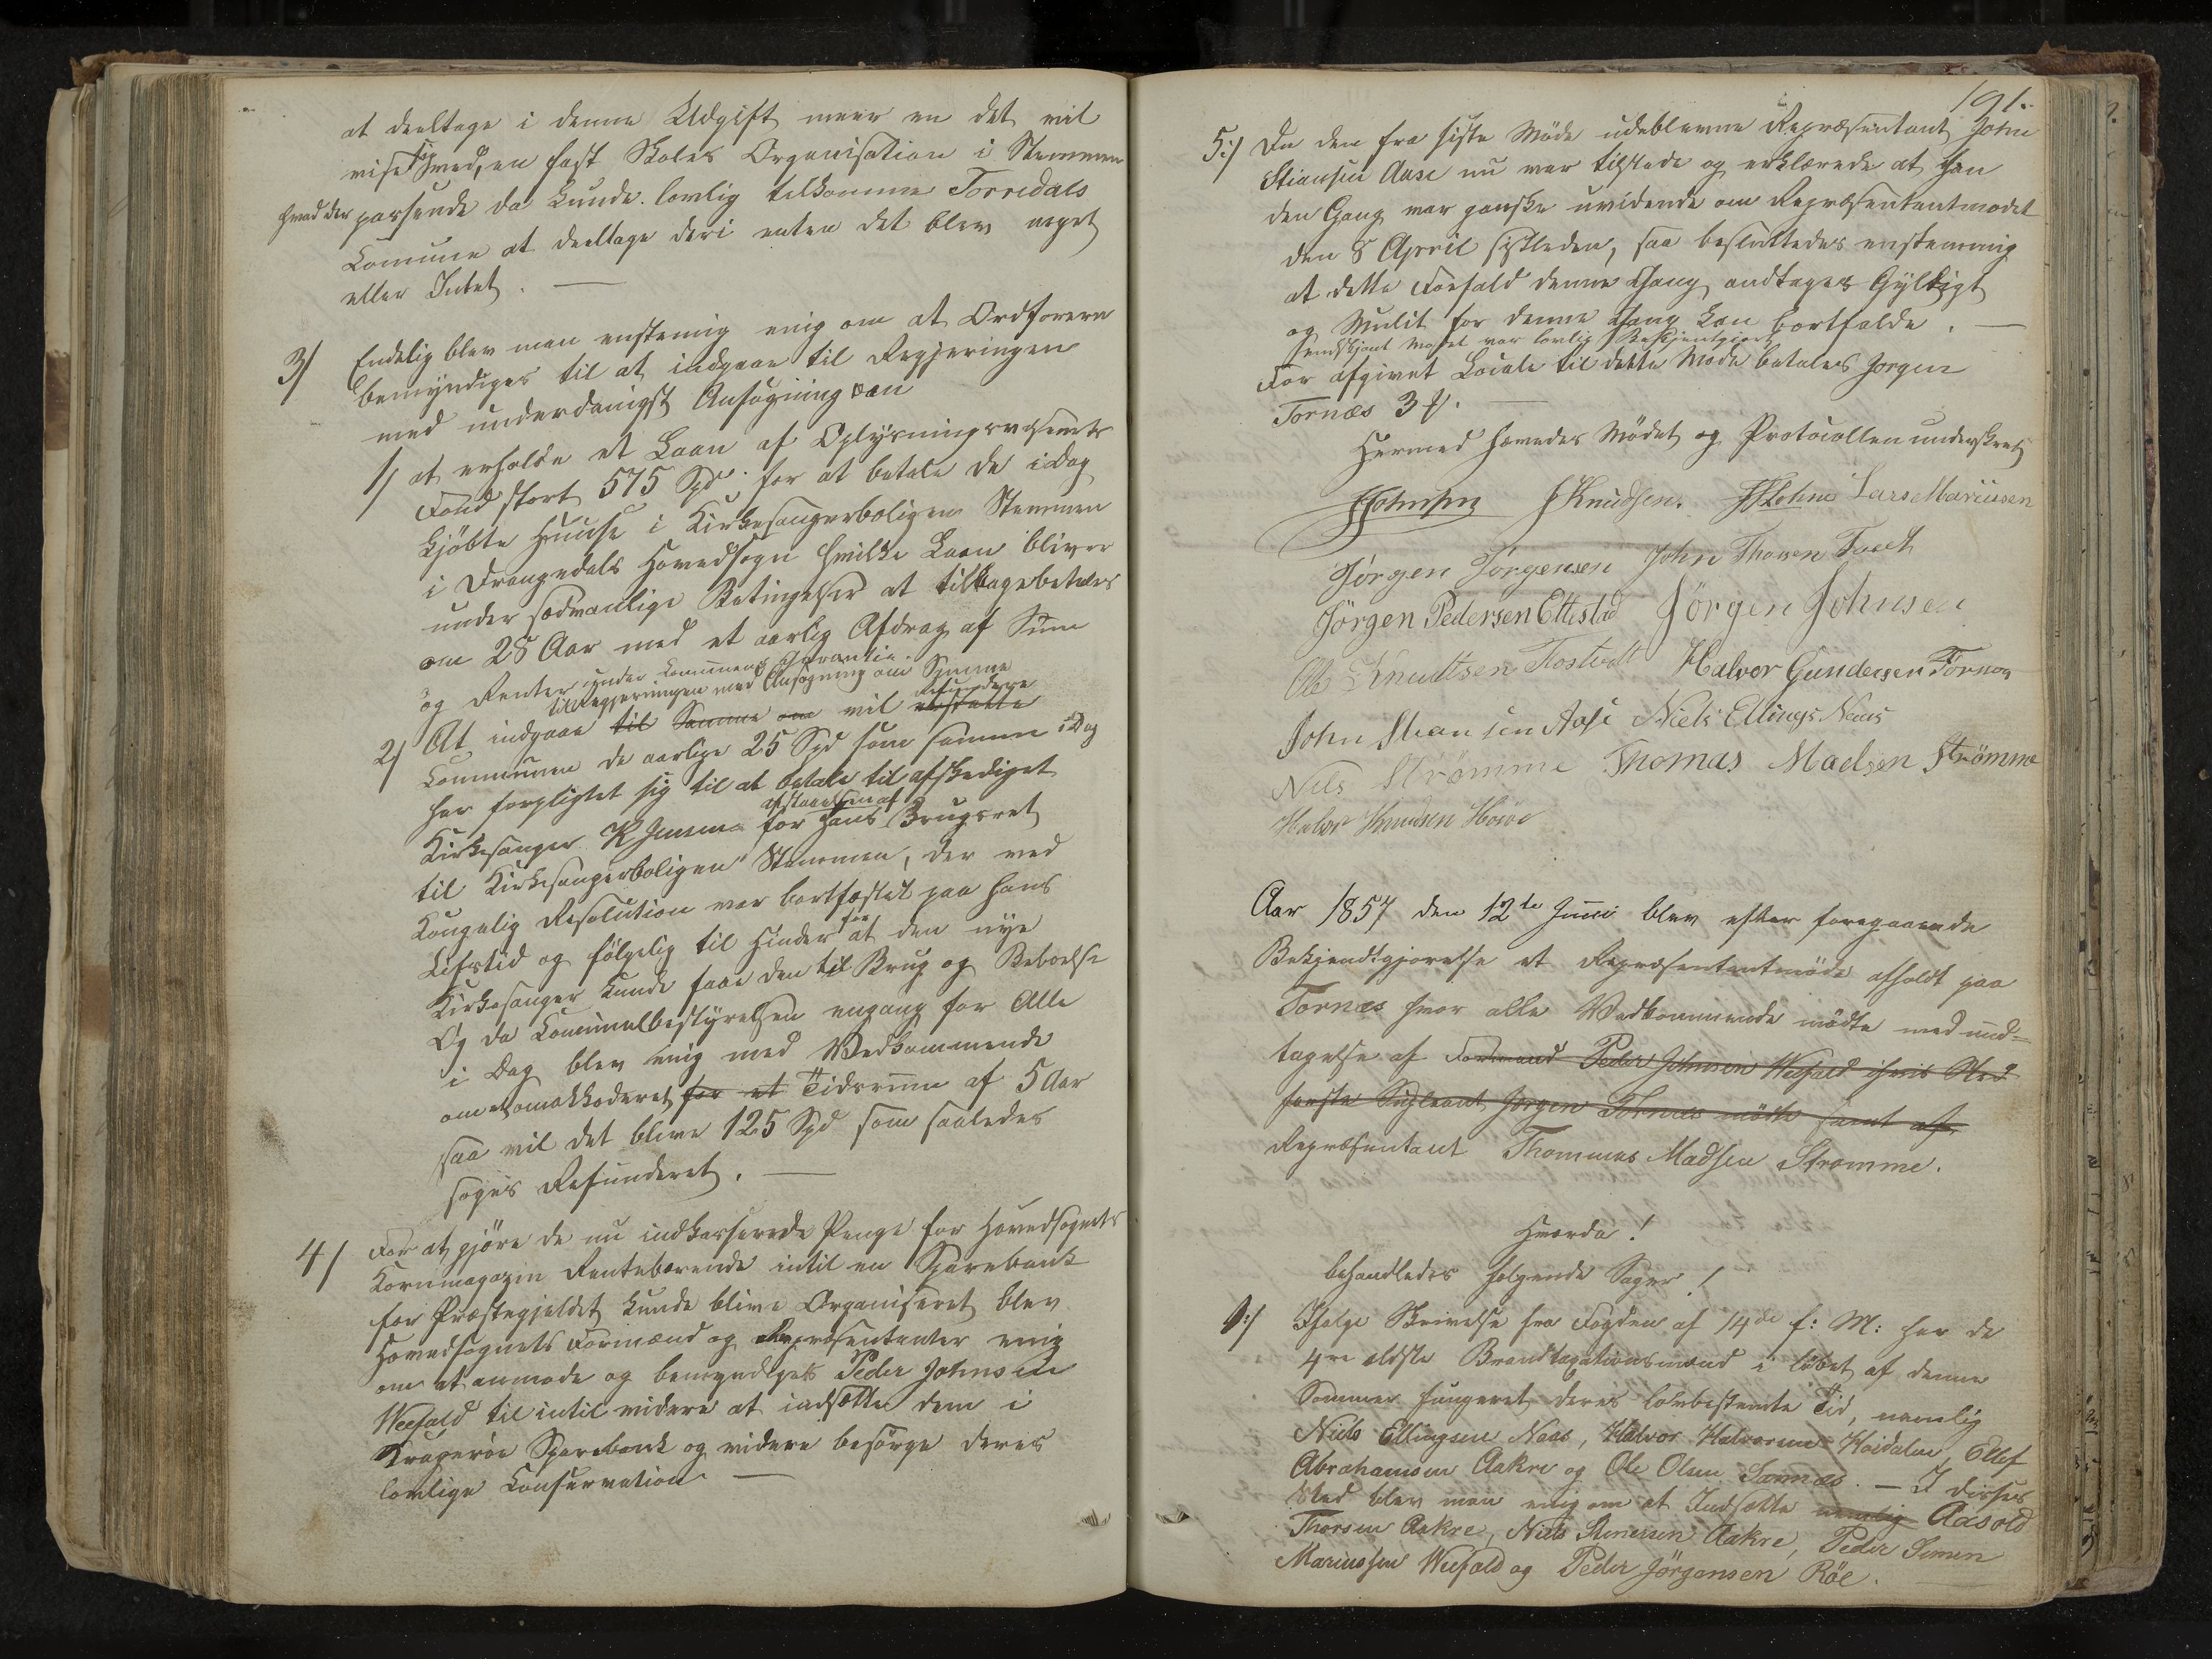 at deeltage i denne Udgift meer en det vil
vise sig ved, en fast Skoles Organisation i Stemmen
hvad der passende da kunde lovlig tilkomme Torredals
Comune at deeltage deri enten det blev noget
eller Intet. —
3/ Endelig blev man enstemig enig om at Ordføreren
bemyndiges til at indgaae til Regjeringen
med underdanigst Ansøgning om
1/ at erholde et Laan af Oplysningsvæsenets
Fond stort 575 Spd for at betale de idag
kjøbte Huuse i Kirkesangerboligen Stemmen
i Drangedals Hovedsogn hvilke Laan bliver
under sædvanlige Betingelser at tilbagebetales
om 28 Aar med et aarlig Afdrag af Sum
og Renter under Comunens Garantie.
til Regjeringen med Ansøgning om Samme
2/ At indgaae til Samme om vil erstatte Refundere
Communen de aarlige 25 Spd som samme i Dag
har forpligtet sig til at betale til afskediget
Kirkesanger K Jensen for afstaaelsen af hans Brugsret
til Kirkesangerboligen Stemmen, der ved
Kongelig Resolution var bortfæstet paa hans
Lifstid og følgelig til Hinder for at den nye
Kirkesanger kunde faae den til Brug og Beboelse
Og da Comunalbestyrelsen engang for Alle
i Dag blev enig med Vedkommende
om et omakkoderet for et Tidsrum af 5 Aar
saa vil det blive 125 Spd som saaledes
søges Refunderet. —
4/ For at gjøre de nu indkasserede Penge for Hovedsognets
Kornmagazin Rentebærende intil en Sparebank
for Præstegjeldet kunde blive Organiseret blev
Hovedsognets Formænd og Repræsentanter enig
om at anmode og bemyndiget Peder Johnsen
Weefald til intil videre at indsætte dem i
Kragerøe Sparebank og videre besørge deres
lovlige Conservation —
191.
5:/ Da den fra siste Møde udeblevne Repræsentant John
Stiansen Aase nu var tilstede og erklærede at han
den Gang var ganske uvidende om Repræsentantmødet
den 8 April sistleden, saa besluttedes enstemmig
at dette Forfald denne Gang andtages Gyldigt
og Mulct for denne Gang kan bortfalde. —
endskjønt Mødet var lovlig Bekjentgjort
For afgivet Locale til dette Møde betales Jørgen
Tornæs 3 ₰. —
Hermed hævedes Mødet og Protocollen underskret
J Knudsen. Lars Mariussen
Jørgen Jørgensen John Thorsen Tvedt
Jörgen Pedersen Ettestad Jörgen Johnsen
Ole Knudtsen Tostvedt Halvor Gundersen Tornæs
John Stiansen Aase Niels Ellings. Naas
Nils Strömme Thomas Madsen Strömme
Halvor Knudsen
Aar 1857 den 12te Juni blev efter foregaaende
Bekjendtgjørelse et Repræsentantmøde afholdt paa
Tornæs hvor alle Vedkommende mødte med und=
tagelse af Formand Peder Johnsen Weefald i hvis Sted
første Supleant Jørgen Tornæs mødte samt af
Repræsentant Thommas Madsen Strømme.
Hvorda!
behandledes følgende Sager!
1:/ Ifølge Skrivelse fra Fogden af 14de f: M: har de
4re ældste Brandtaxationsmænd i løbet af denne
Sommer fungeret deres lovbestemte Tid, nemlig
Niels Ellingsen Naas, Halvor Halvorsen Heidalen, Ellef
Abrahamsen Aakre og Ole Olsen Sannæs. — I disses
Sted blev man enig om at Indsætte nemlig Aasold
Thorsen Aakre, Niels Simensen Aakre, Peder Simen
Mariussen Weefald og Peder Jörgensen Röe.